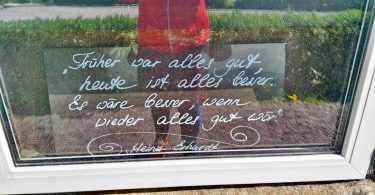 "Früher war alles gut
heute ist alles besser.
Es wäre besser, wenn
wieder alles gut wär"
Heinz Erhardt